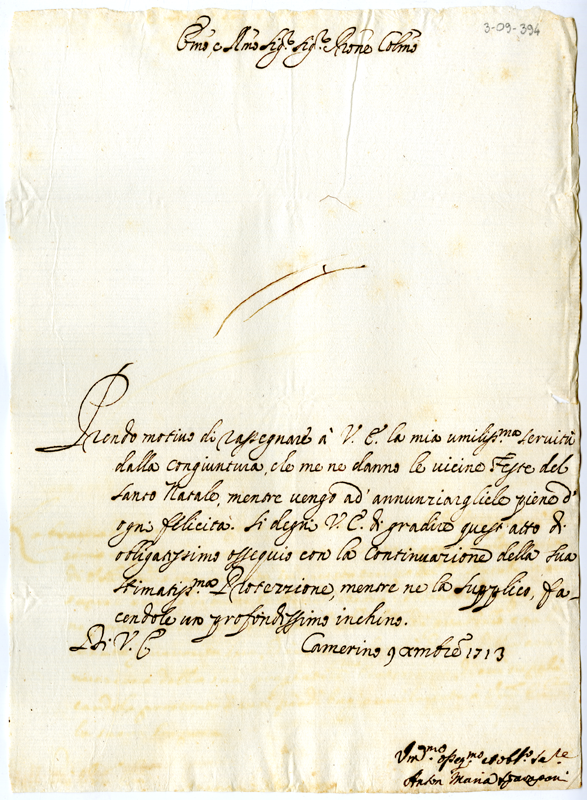 3-09-394
Em̃o, e Rm̃o Sig.re Sig.re Pron̄e Colm̃o
Prendo motivo di rassegnare à V. E. la mia umiliss.ma servitù
dalla congiuntura, che me ne danno le vicine Feste del
Santo Natale, mentre vengo ad' annunziargliele piene d'
ogni felicità. Si degni V. E. di gradire quest' atto di
obligatissimo ossequio con la continuazione della sua
stimatiss.ma Protezzione, mentre ne la supplico, fa-
cendole un profondissimo inchino.
Di V. E. Camerino 9 xmbre 1713
Um.mo osseq.mo et obl.o Se.re
Anton Maria